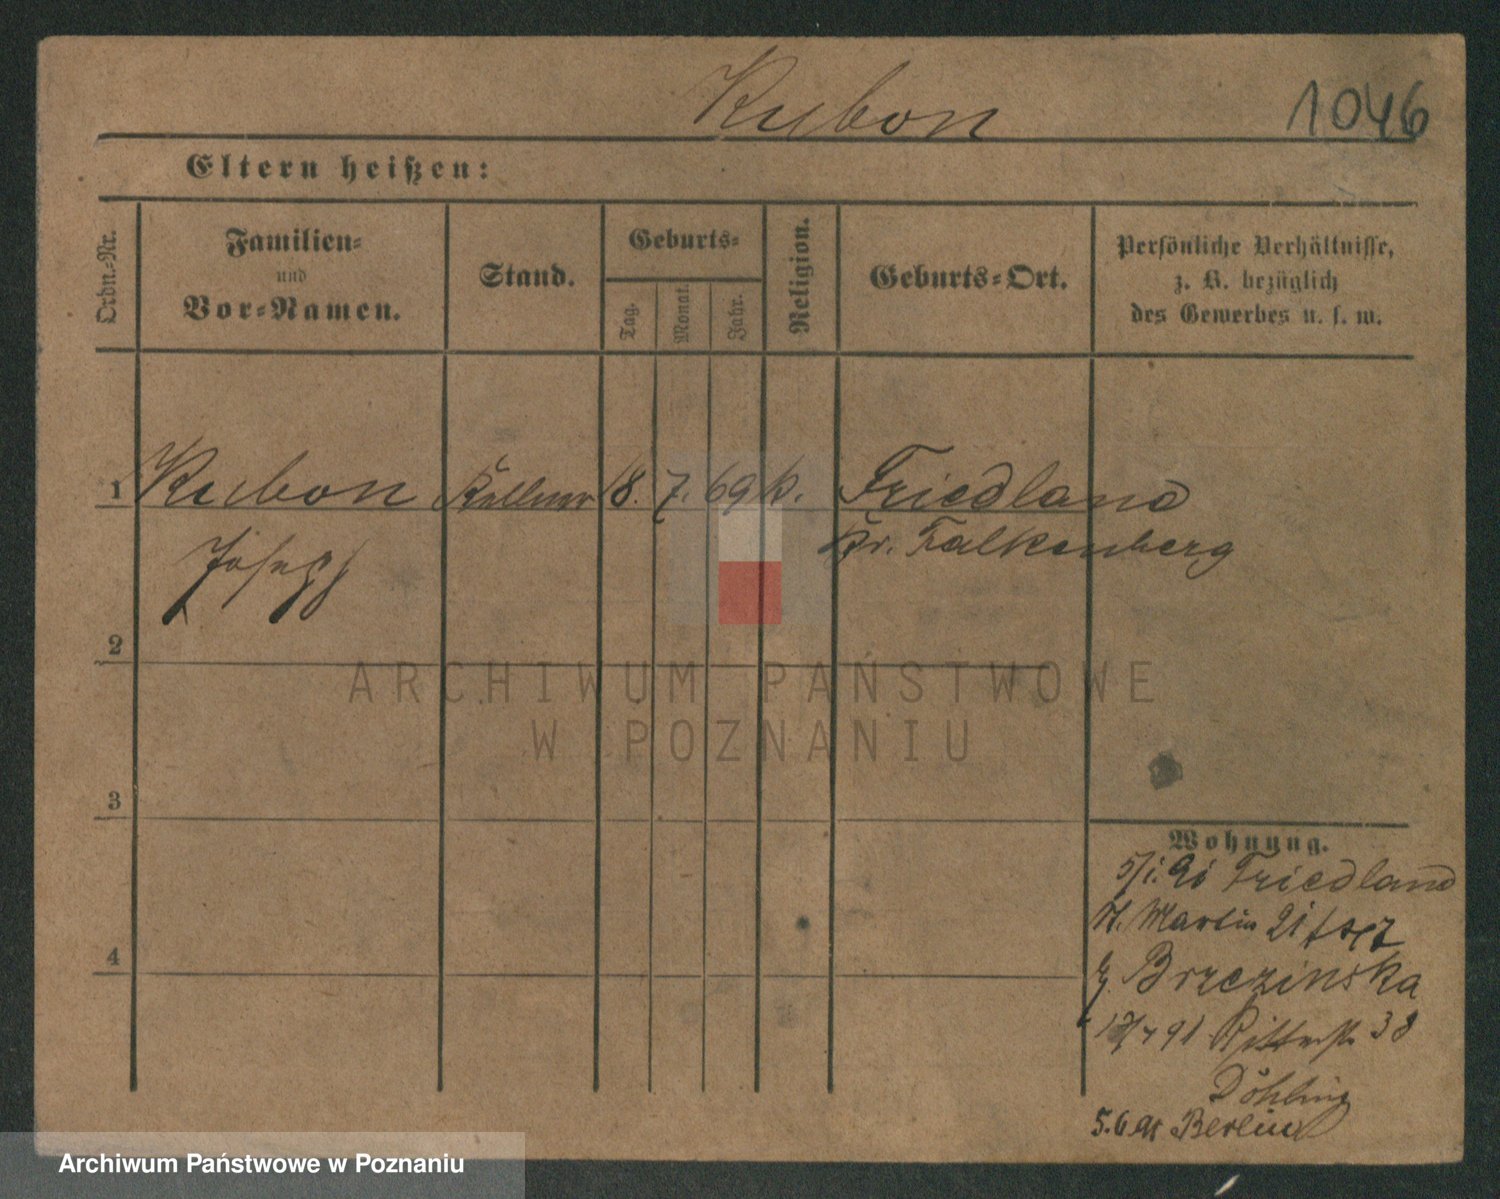 Kubon
1046
Eltern heißen:
Ordn.-Nr.
Familien-
und
Vor-Namen.
Stand.
Geburts-
Tag.
Monat.
Jahr.
Religion.
Geburts-Ort.
Persönliche Verhältnisse,
z. B. bezüglich
des Gewerbes u. s. w.
1 Kubon Kellner 18. 7. 69 k. Friedland
Josef Kr. Falkenberg
2
ARCHIWUM PAŃSTWOWE
W POZNANIU
3
4
Wohnung.
5/1. 91 Friedland
St. Martin 21
Brzezinska
4 91 Ritterstr 38
Döhling
5.6 91 Berlin
Archiwum Państwowe w Poznaniu